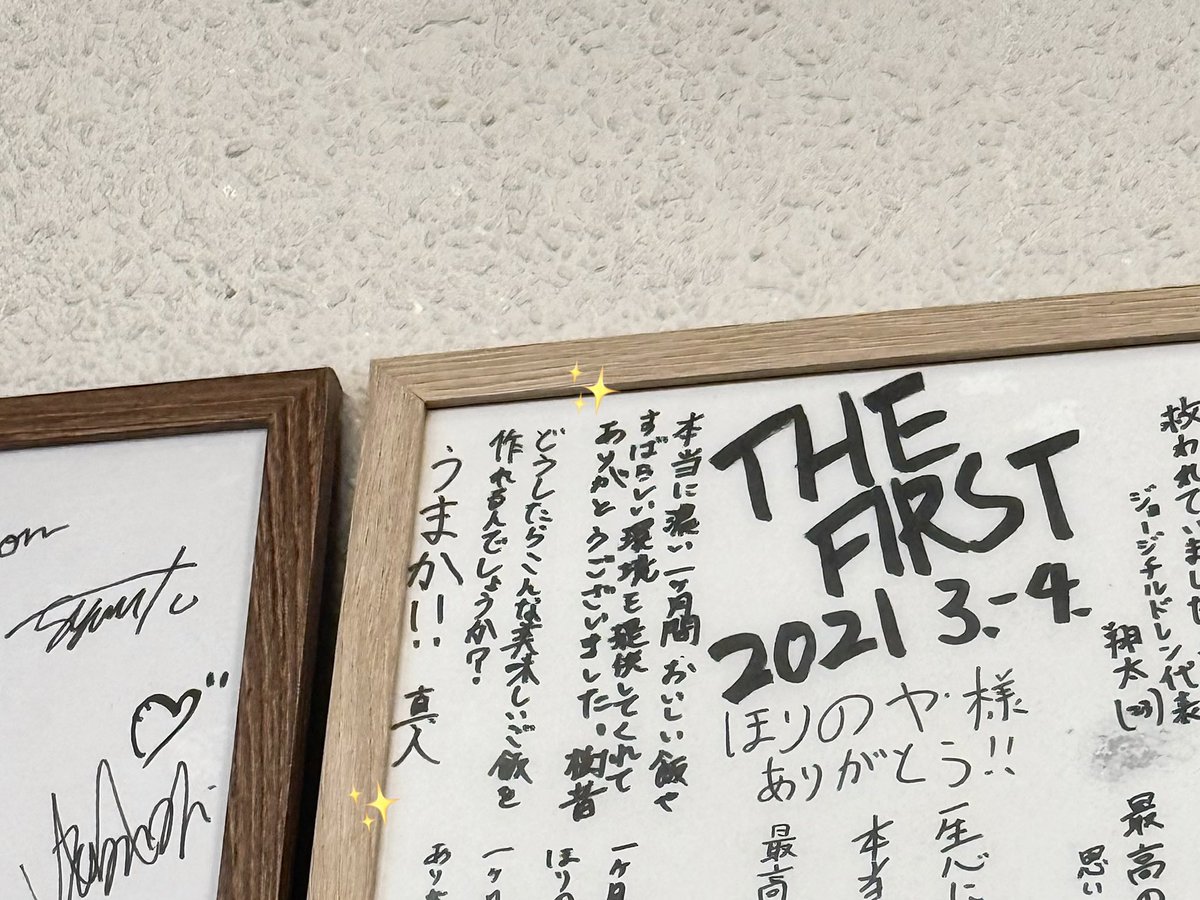 THE
FIRST
2021 3.-4.
ほりのや様
ありがとう!!
救われていました
ジョージチルドレン代表
翔太(23)
本当に濃い一ヶ月間 おいしい飯や
すばらしい環境を提供してくれて
ありがとうございました。樹音
どうしたらこんな美味しいご飯を
作れるんでしょうか?
うまか!! 真人
最高の
思い
一生心に
本当
最高
一ヶ月
ほりの
一ヶ月
あり
on